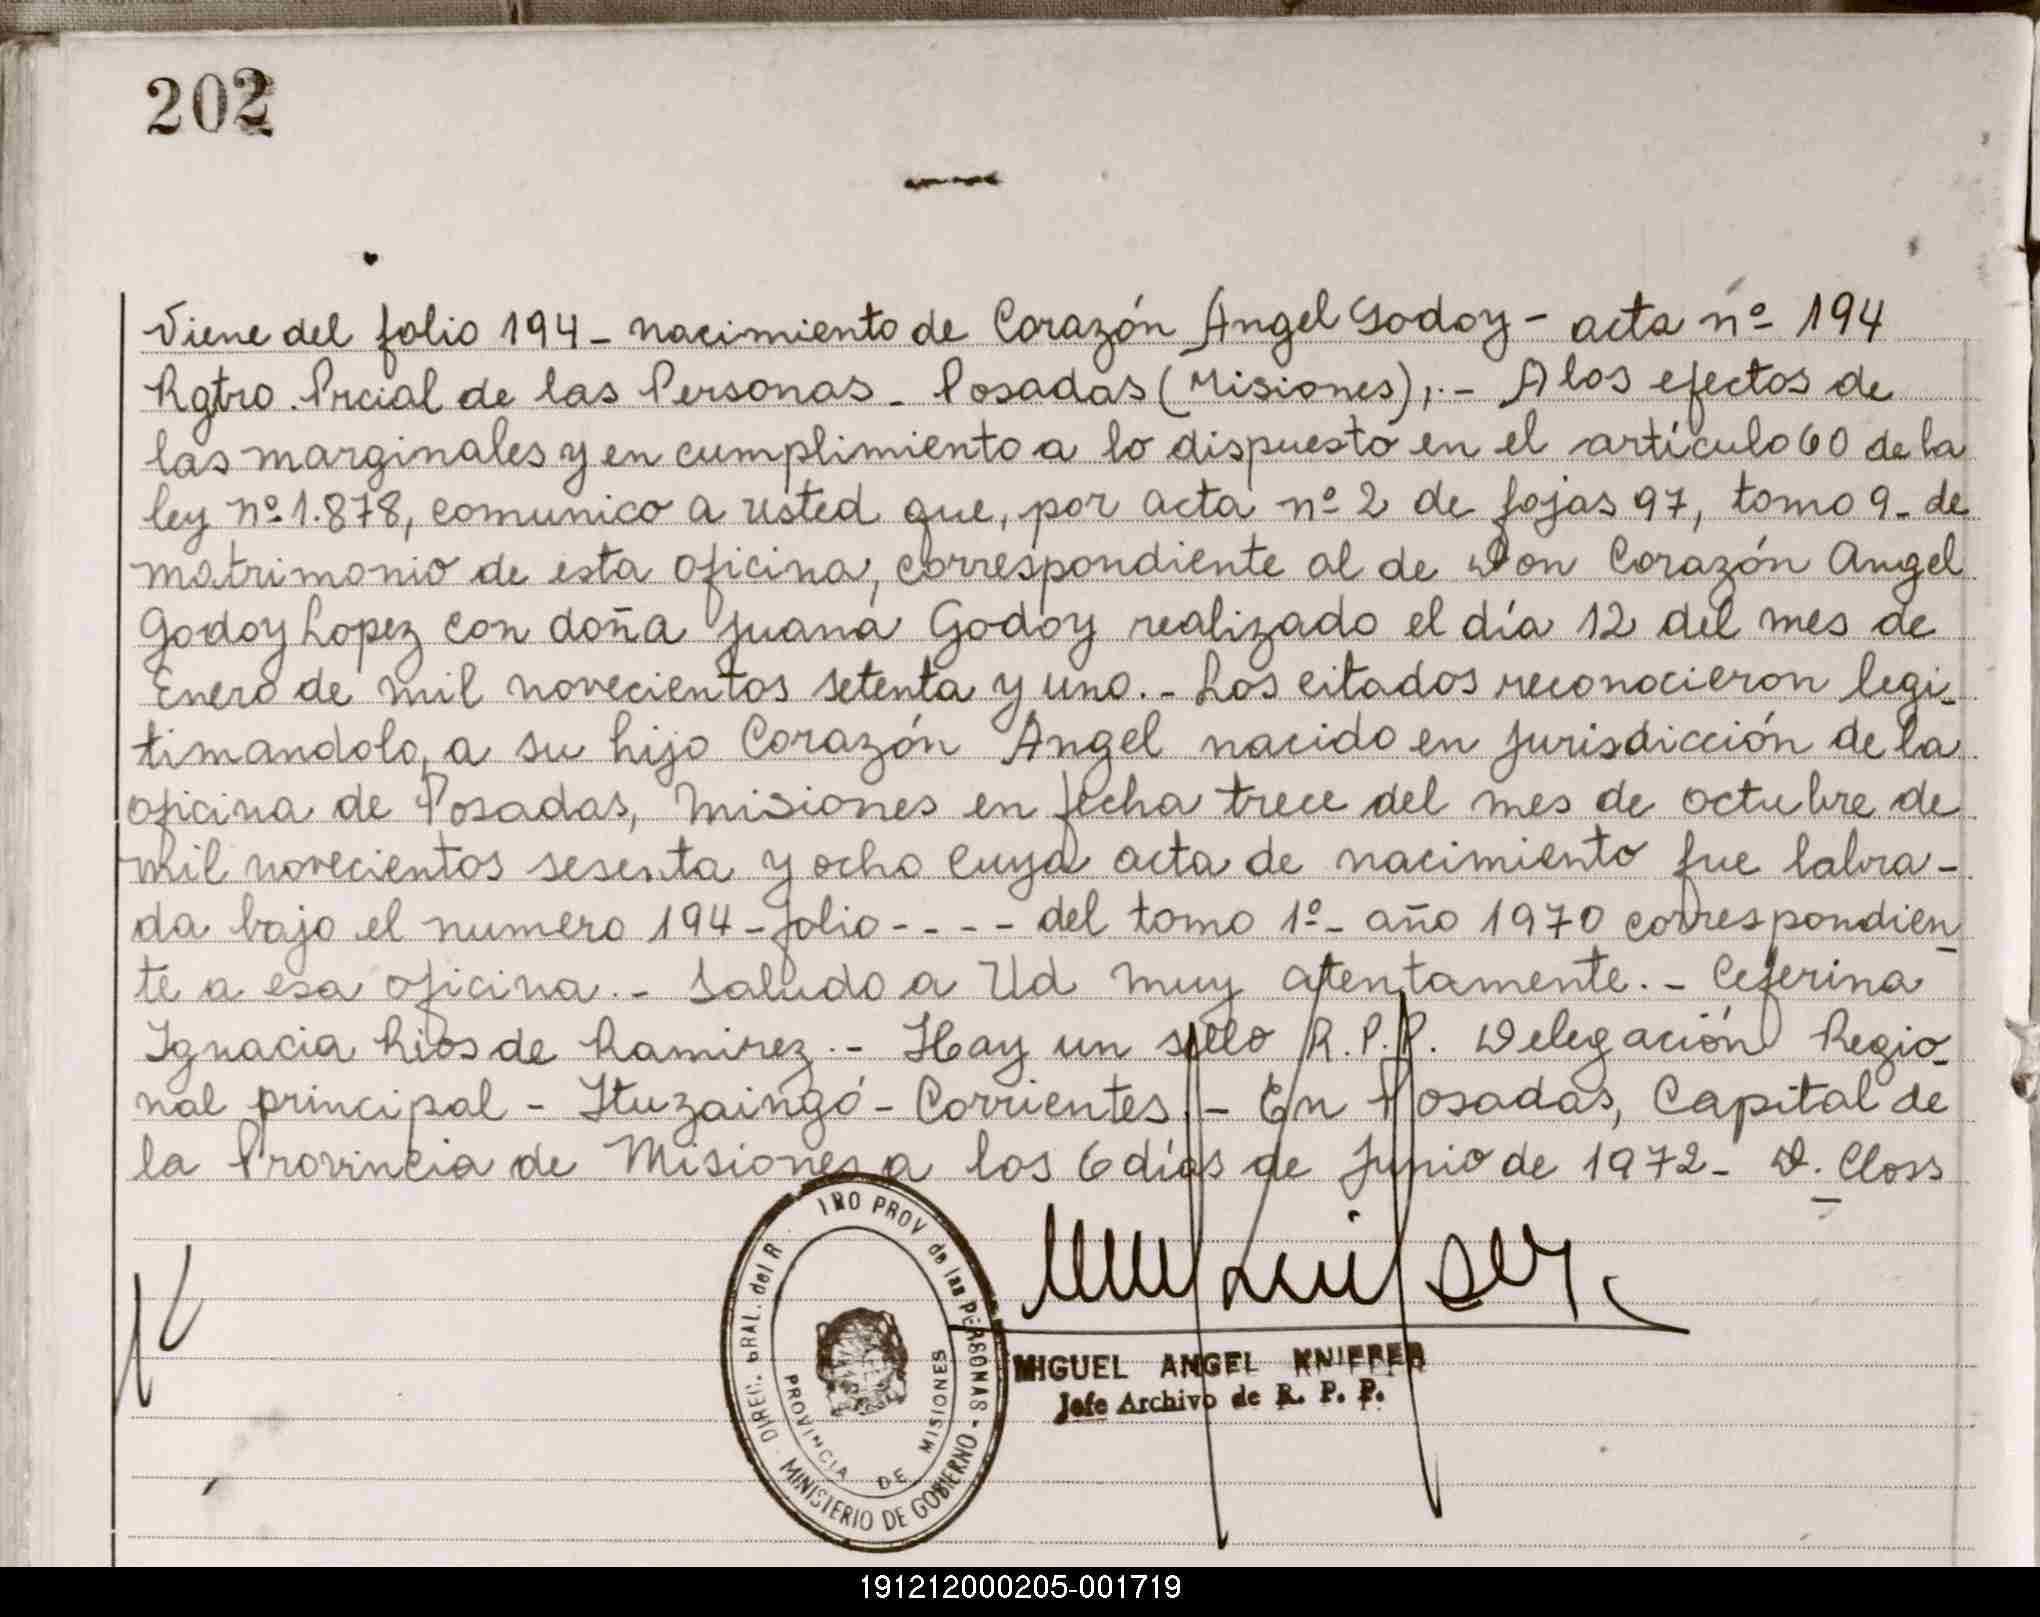 202
Viene del folio 194 - nacimiento de Corazón Angel Godoy - acta nº 194
Rgtro. Prcial de las Personas - Posadas (Misiones);.- A los efectos de
las marginales y en cumplimiento a lo dispuesto en el artículo 60 de la
ley nº 1.878, comunico a usted que, por acta nº 2 de fojas 97, tomo 9 - de
matrimonio de esta oficina, correspondiente al de Don Corazón Angel
Godoy Lopez con doña Juana Godoy realizado el día 12 del mes de
Enero de mil novecientos setenta y uno. - Los citados reconocieron legi-
timandolo, a su hijo Corazón Angel nacido en jurisdicción de la
oficina de Posadas, Misiones en fecha trece del mes de octubre de
mil novecientos sesenta y ocho cuya acta de nacimiento fue labra-
da bajo el numero 194 - folio - - - - del tomo 1º - año 1970 correspondien-
te a esa oficina. - Saludo a Ud muy atentamente. - Ceferina
Ignacia Rios de Ramirez. - Hay un sello R.P.P. Delegación Regio-
nal principal - Ituzaingó - Corrientes. - En Posadas, Capital de
la Provincia de Misiones a los 6 días de Junio de 1972 - D. Closs
DIREC. GRAL. del R IRO PROV de las PERSONAS - MINISTERIO DE GOBIERNO
PROVINCIA DE MISIONES
MIGUEL ANGEL KNIEPER
Jefe Archivo de R. P. P.
191212000205-001719